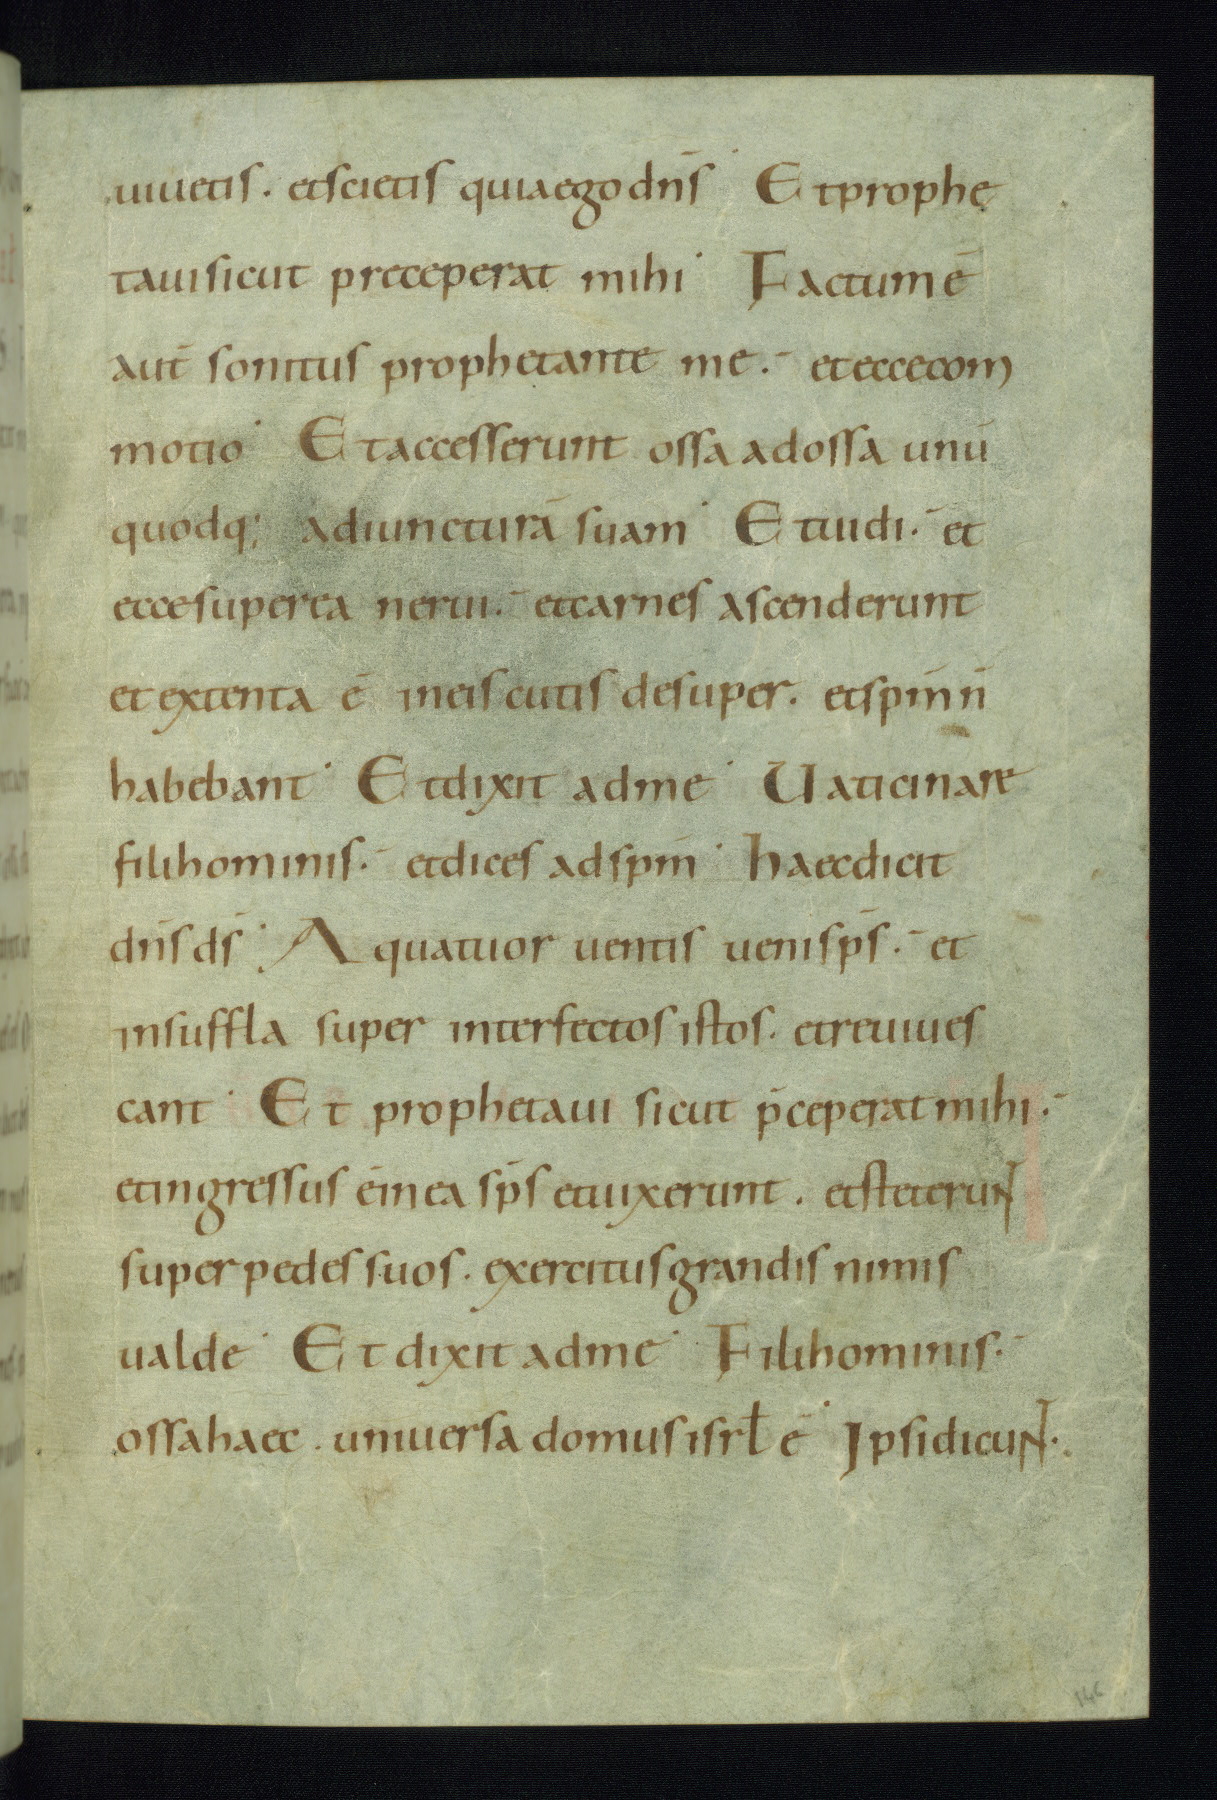 uiuetis. etscietis quiaegodn̄s Etprophe
tauisicut preceperat mihi Factumē
aut̄ sonitus prophetante me. eteccecom
motio Etaccesserunt ossaadossa unū
quodq; adiuncturā suam Etuidi. et
eccesuperea nerui. etcarnes ascenderunt
etextenta ē ineiscutis desuper. etspm̄ n̄
habebant Etdixit adme Uaticinare
filihominis. etdices adspm̄ haecdicit
dn̄s ds̄ Aquatuor uentis uenisps̄. et
insuffla super interfectos istos. etreuiues
cant Et prophetaui sicut p̄ceperatmihi.
etingressus ēinea sps̄ etuixerunt. etsteterunt
superpedessuos. exercitusgrandis nimis
ualde Et dixit adme Filihominis.
ossahaec. uniuersa domusisrł ē Ipsidicunt.
146